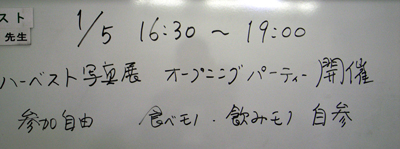 スト
先生
1/5 16:30 〜 19:00
ハーベスト写真展 オープニングパーティー開催
参加自由 食べモノ・飲みモノ 自参